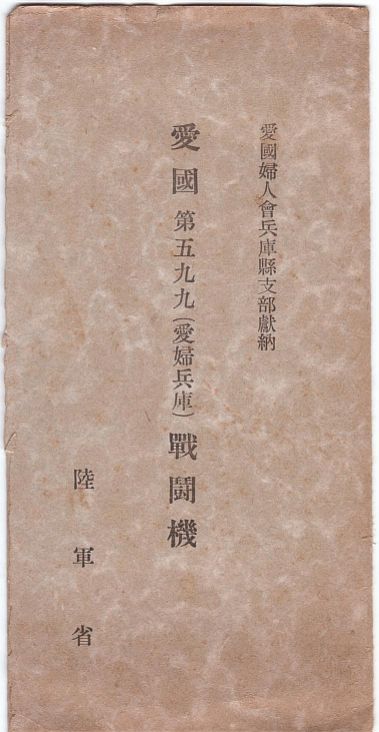 愛國婦人會兵庫縣支部獻納
愛國第五九九(愛婦兵庫)戰鬪機
陸軍省